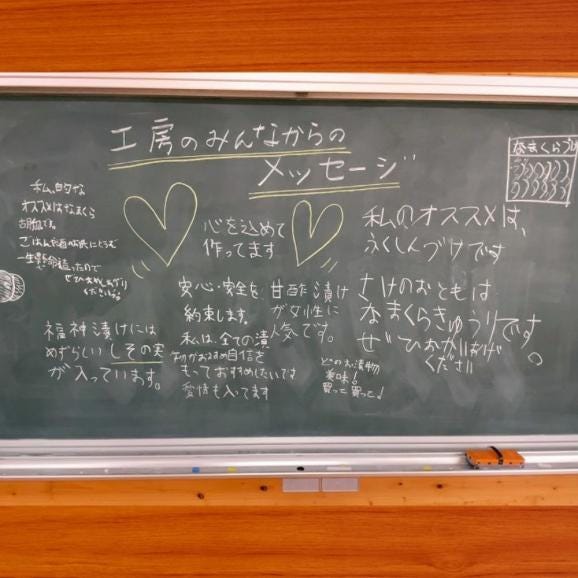 工房のみんなからの
メッセージ
なまくらづけ
私的な
オススメはなまくら
胡瓜です。
ごはんお酒のお供にどうぞ
一生懸命造ったので
ぜひおめしあがり
ください。
心を込めて
作ってます
私のオススメは、
ふくしんづけです
さけのおともは
なまくらきゅうりです。
ぜひおかいあげ
ください
安心・安全を
約束します。
私は、全ての漬
物がおすすめ自信を
もっておすすめしたいです
愛情も入ってます
甘酢漬け
が女性に
人気です。
どのお漬物
美味!
買って買って♪
福神漬けには
めずらしいしその実
が入っています。